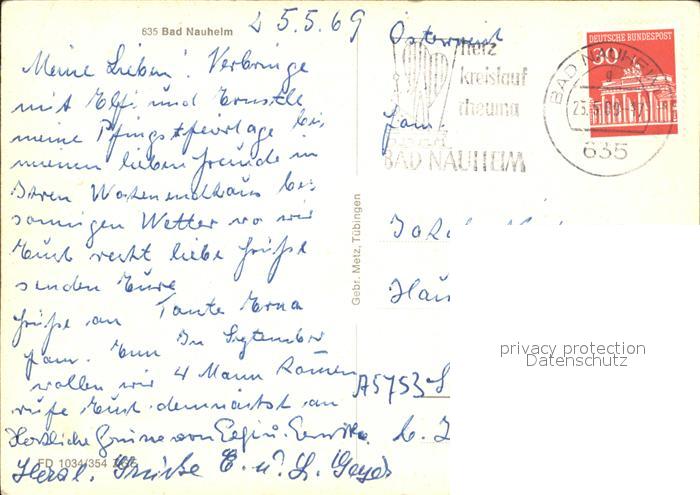 635 Bad Nauheim
25.5.69
Meine Lieben! Verbringe
mit Elfi und Ernstle
meine Pfingstfeiertage bei
meinen lieben Freunde in
Ihren Wochenendhaus bei
sonnigen Wetter wo wir
Euch recht liebe Grüße
senden Eure
Tante Erna
Grüße an
Fam. In September
wollen wir 4 Mann kommen
rufe Euch demnächst an
Herzliche Grüsse von
Herzl. Grüße E. u. L. Geyer
FD 1034/354
Gebr. Metz, Tübingen
Österreich
herz
kreislauf
rheuma
BAD NAUHEIM
DEUTSCHE BUNDESPOST
30
BAD NAUHEIM
635
Fam.
Haus
A5753 S
privacy protection
Datenschutz